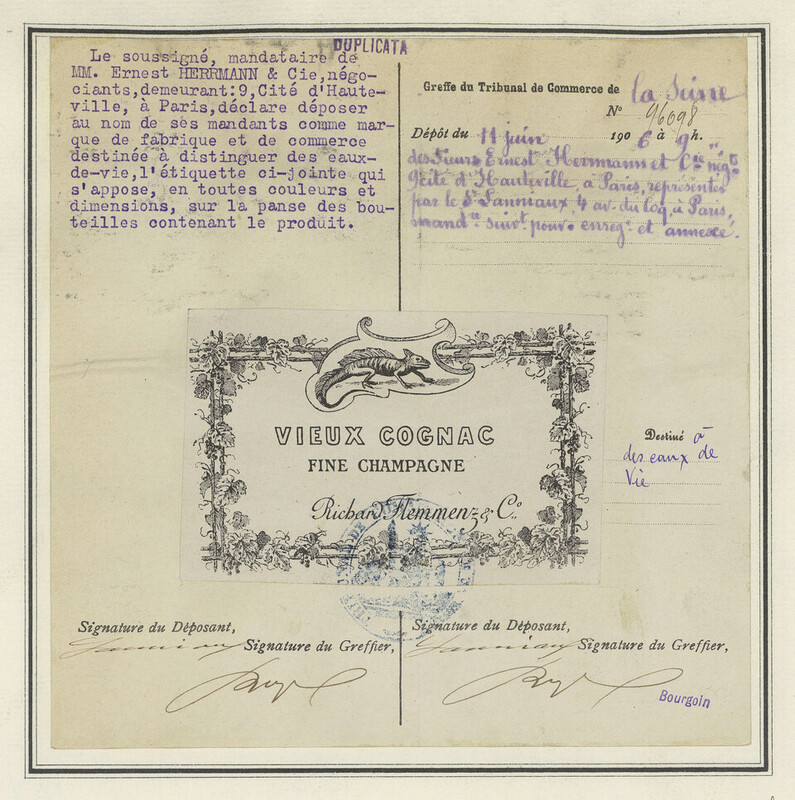 DUPLICATA
Le soussigné, mandataire de
MM. Ernest HERRMANN & Cie,négo-
ciants,demeurant:9,Cité d'Haute-
ville, à Paris,déclare déposer
au nom de ses mandants comme mar-
que de fabrique et de commerce
destinée à distinguer des eaux-
de-vie,l'étiquette ci-jointe qui
s'appose, en toutes couleurs et
dimensions, sur la panse des bou-
teilles contenant le produit.
Greffe du Tribunal de Commerce de la Seine
N° 96098
Dépôt du 11 juin 1906 à 9 h.
des Sieurs Ernest Herrmann et Cie négts
9 cité d'Hauteville, à Paris, représentés
par le Sr Lanniaux, 4 av. du Coq, à Paris,
mandre suivt pouvr enregé et annexé.
VIEUX COGNAC
FINE CHAMPAGNE
Richard Flemmenz & Co.
Destiné à
des eaux de
Vie
Signature du Déposant,
Signature du Greffier,
Signature du Déposant,
Signature du Greffier,
Bourgoin